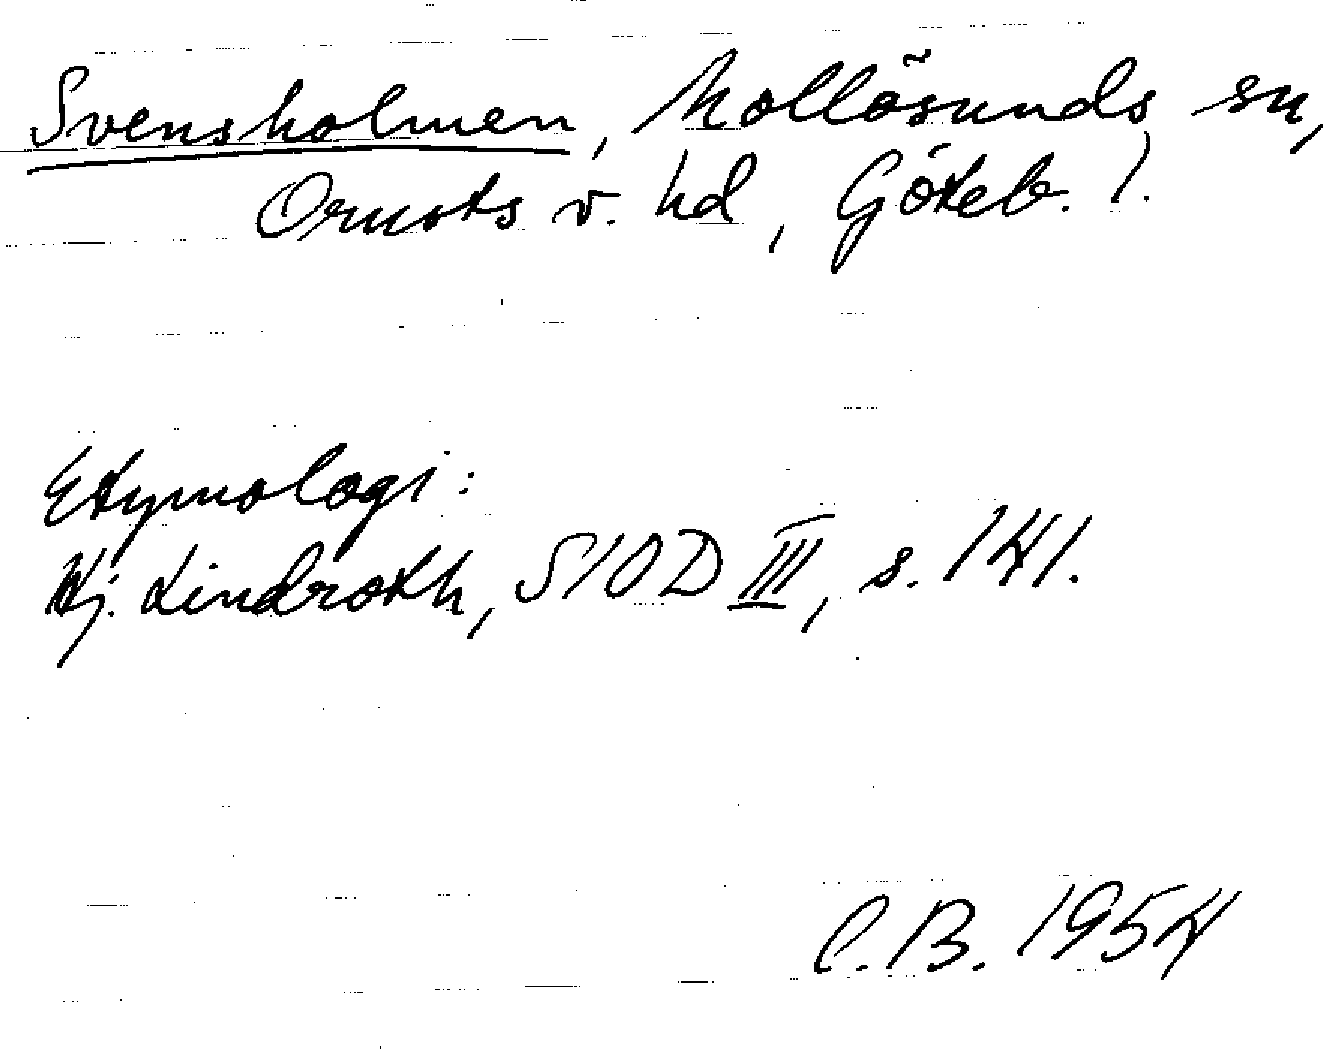 Svensholmen, Mollösunds sn,
Orusts v. hd, Göteb. l.
Etymologi:
Hj. Lindroth, SIOD III, s. 141.
C.B. 1954